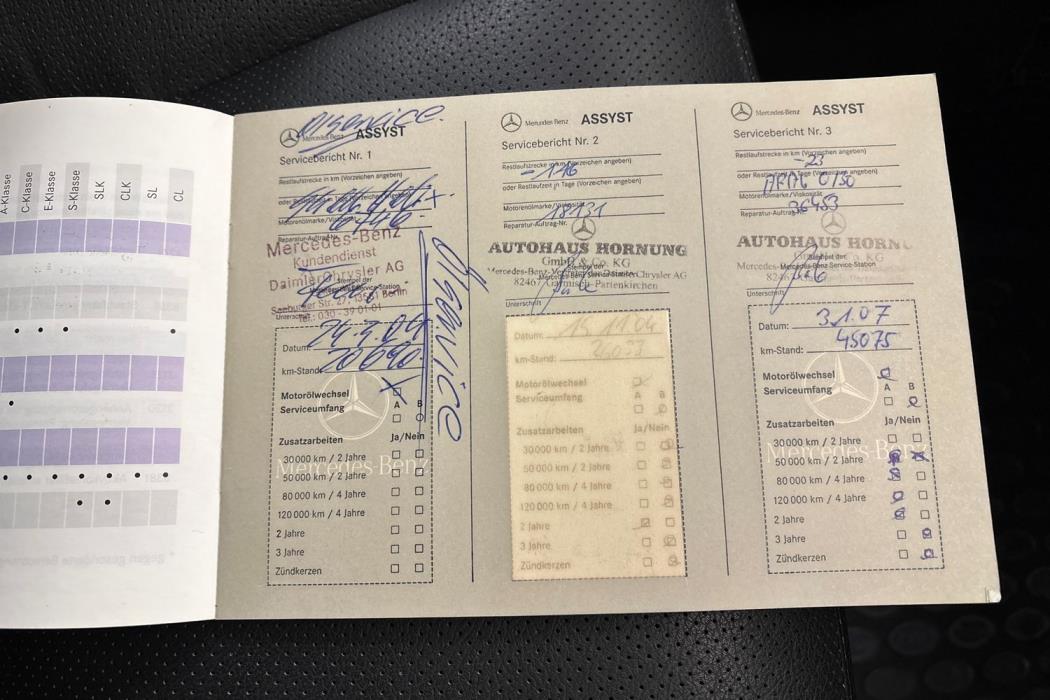 A-Klasse
C-Klasse
E-Klasse
S-Klasse
SLK
CLK
SL
CL
Mercedes-Benz ASSYST
Servicebericht Nr. 1
Restlaufstrecke in km (Vorzeichen angeben)
oder Restlaufzeit in Tage (Vorzeichen angeben)
Motorenölmarke/Viskosität
Reparatur-Auftrag-Nr.
Mercedes-Benz
Kundendienst
DaimlerChrysler AG
Seeburger Str. 27, 13581 Berlin
Tel.: 030 - 39 01-01
Unterschrift
Datum:
km-Stand: 20690
Ölservice
Motorölwechsel
A B
Serviceumfang
Zusatzarbeiten Ja/Nein
30 000 km / 2 Jahre
Mercedes-Benz
50 000 km / 2 Jahre
80 000 km / 4 Jahre
120 000 km / 4 Jahre
2 Jahre
3 Jahre
Zündkerzen
Mercedes-Benz ASSYST
Servicebericht Nr. 2
Restlaufstrecke in km (Vorzeichen angeben)
- 116
oder Restlaufzeit in Tage (Vorzeichen angeben)
Motorenölmarke/Viskosität
18131
Reparatur-Auftrag-Nr.
AUTOHAUS HORNUNG
GmbH & Co. KG
Stempel der
Mercedes-Benz Service-Station
82467 Garmisch-Partenkirchen
Unterschrift
Datum: 15.11.04
km-Stand:
Motorölwechsel
A B
Serviceumfang
Zusatzarbeiten Ja/Nein
30 000 km / 2 Jahre
50 000 km / 2 Jahre
80 000 km / 4 Jahre
120 000 km / 4 Jahre
2 Jahre
3 Jahre
Zündkerzen
Mercedes-Benz ASSYST
Servicebericht Nr. 3
Restlaufstrecke in km (Vorzeichen angeben)
- 23
oder Restlaufzeit in Tage (Vorzeichen angeben)
Motorenölmarke/Viskosität
36453
Reparatur-Auftrag-Nr.
AUTOHAUS HORNU
Stempel der
Mercedes-Benz Service-Station
Unterschrift
Datum: 3.1.07
km-Stand: 45075
Motorölwechsel
A B
Serviceumfang
Zusatzarbeiten Ja/Nein
30 000 km / 2 Jahre
Mercedes-Benz
50 000 km / 2 Jahre
80 000 km / 4 Jahre
120 000 km / 4 Jahre
2 Jahre
3 Jahre
Zündkerzen